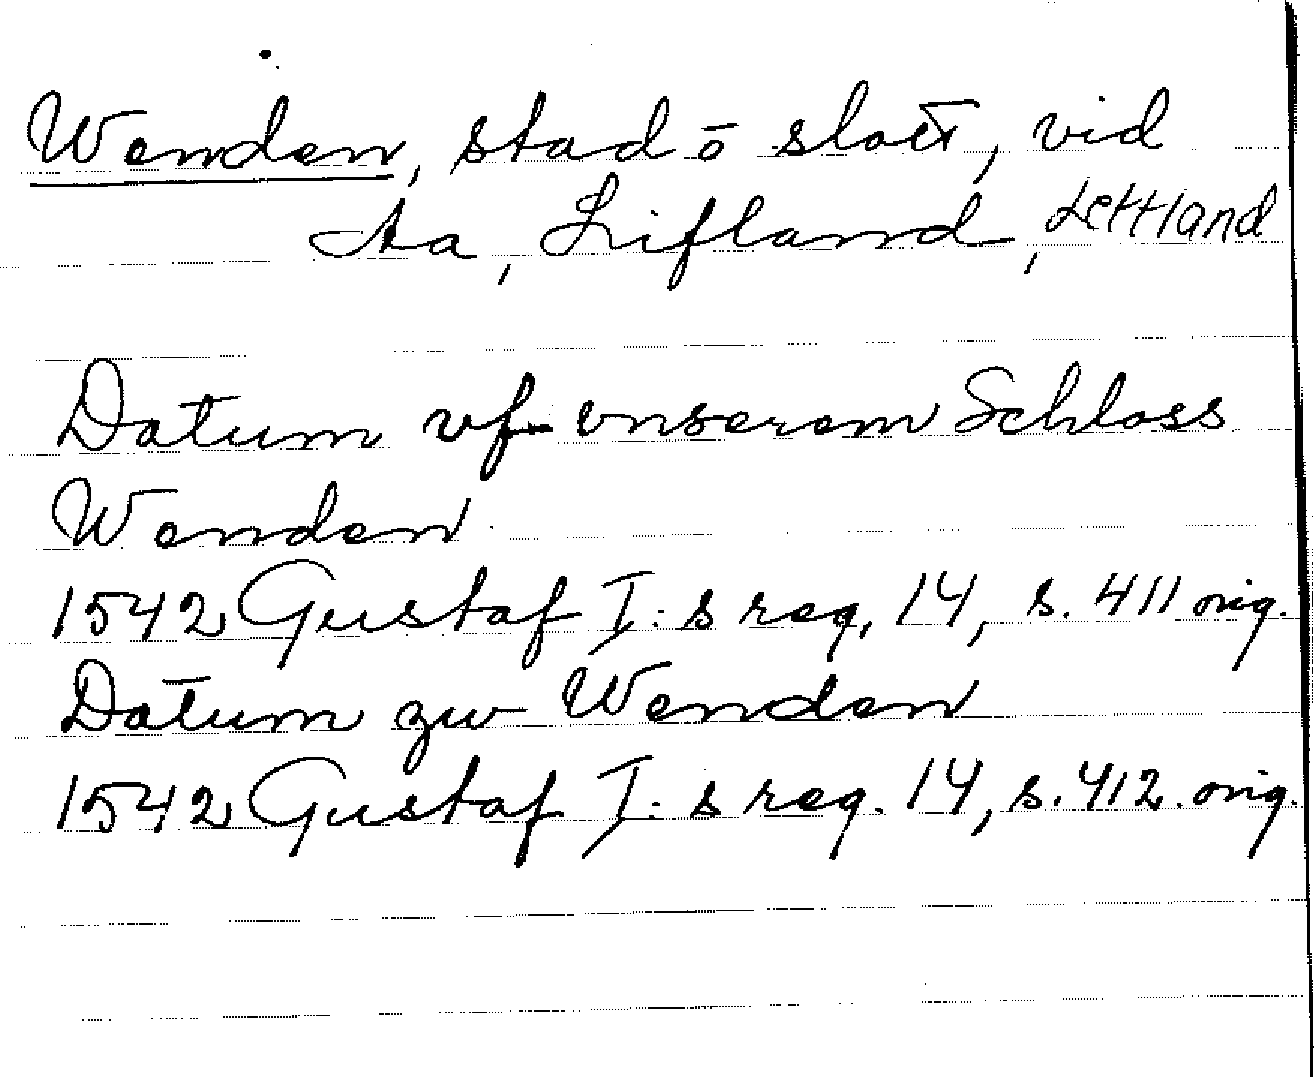 Wenden, stad ō slott, vid
Aa, Lifland, Lettland
Datum vf vnserem Schloss
Wenden
1542 Gustaf I:s reg. 14, s. 411 orig.
Datum zw Wenden
1542 Gustaf I:s reg. 14, s. 412. orig.